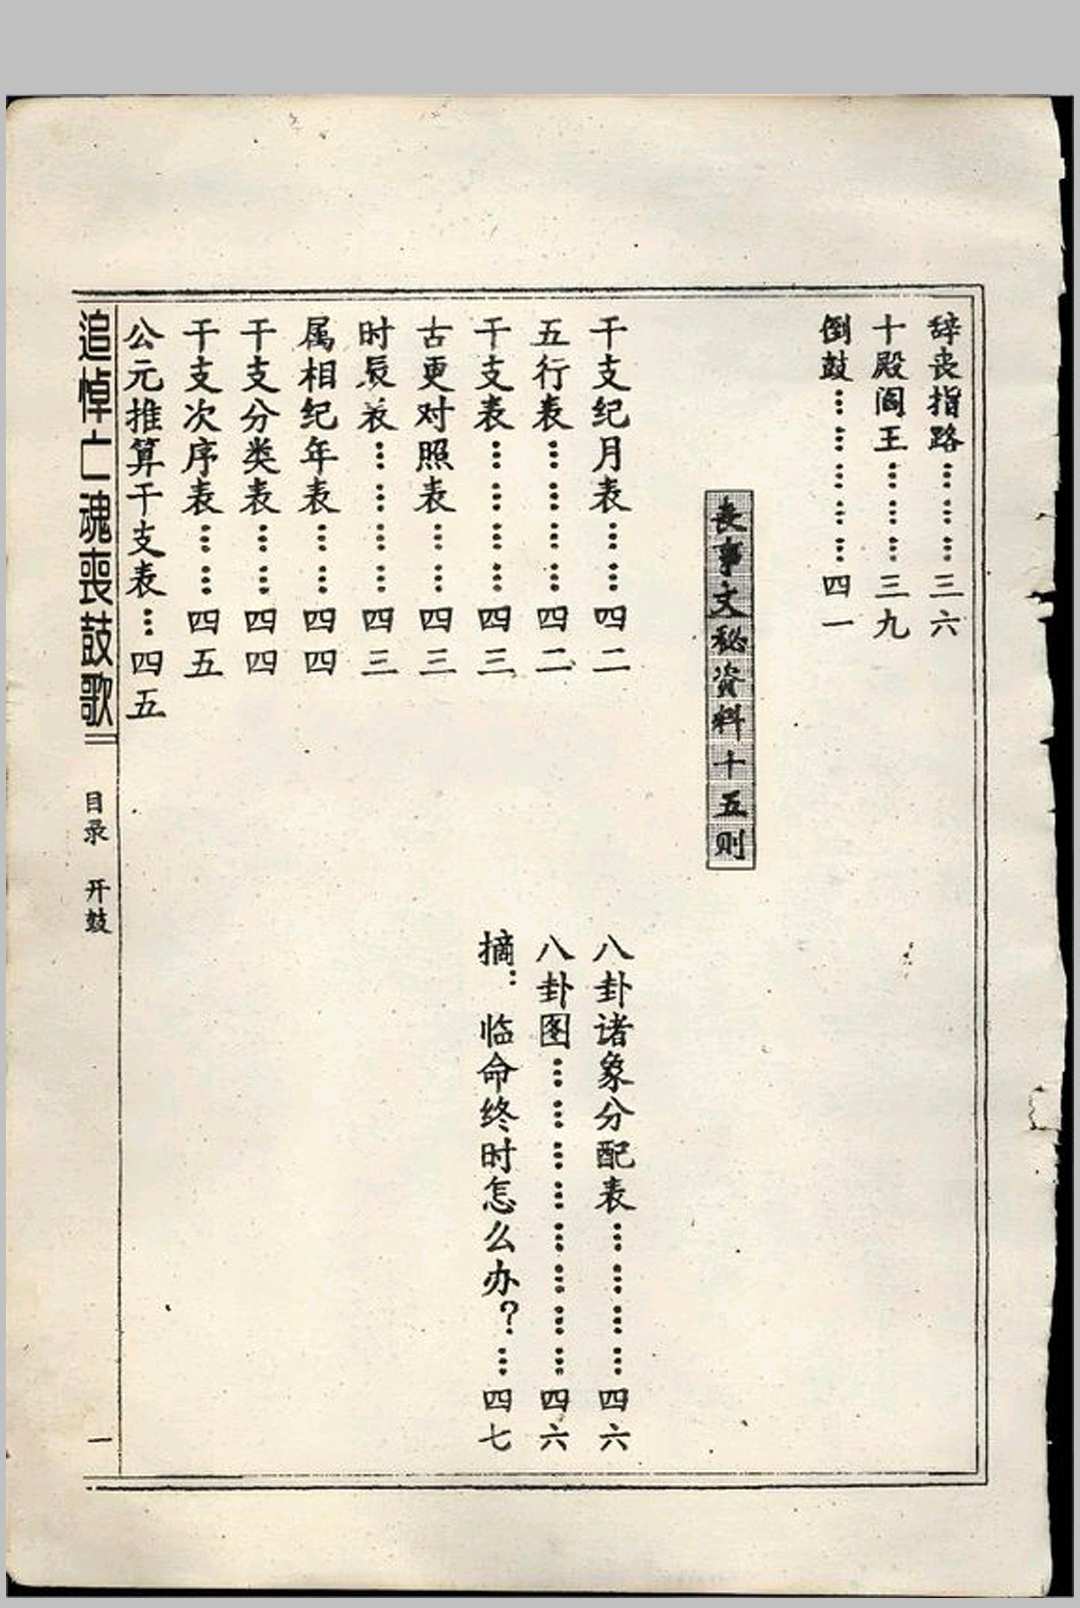 辞丧指路……………三六
十殿阎王……………三九
倒鼓…………………四一
丧事文秘资料十五则
干支纪月表………四二
五行表……………四二
干支表……………四三
古更对照表………四三
时辰表……………四三
属相纪年表………四四
干支分类表………四四
干支次序表………四五
公元推算干支表…四五
八卦诸象分配表…………四六
八卦图……………………四六
摘：临命终时怎么办？…四七
追悼亡魂丧鼓歌
目录 开鼓
一